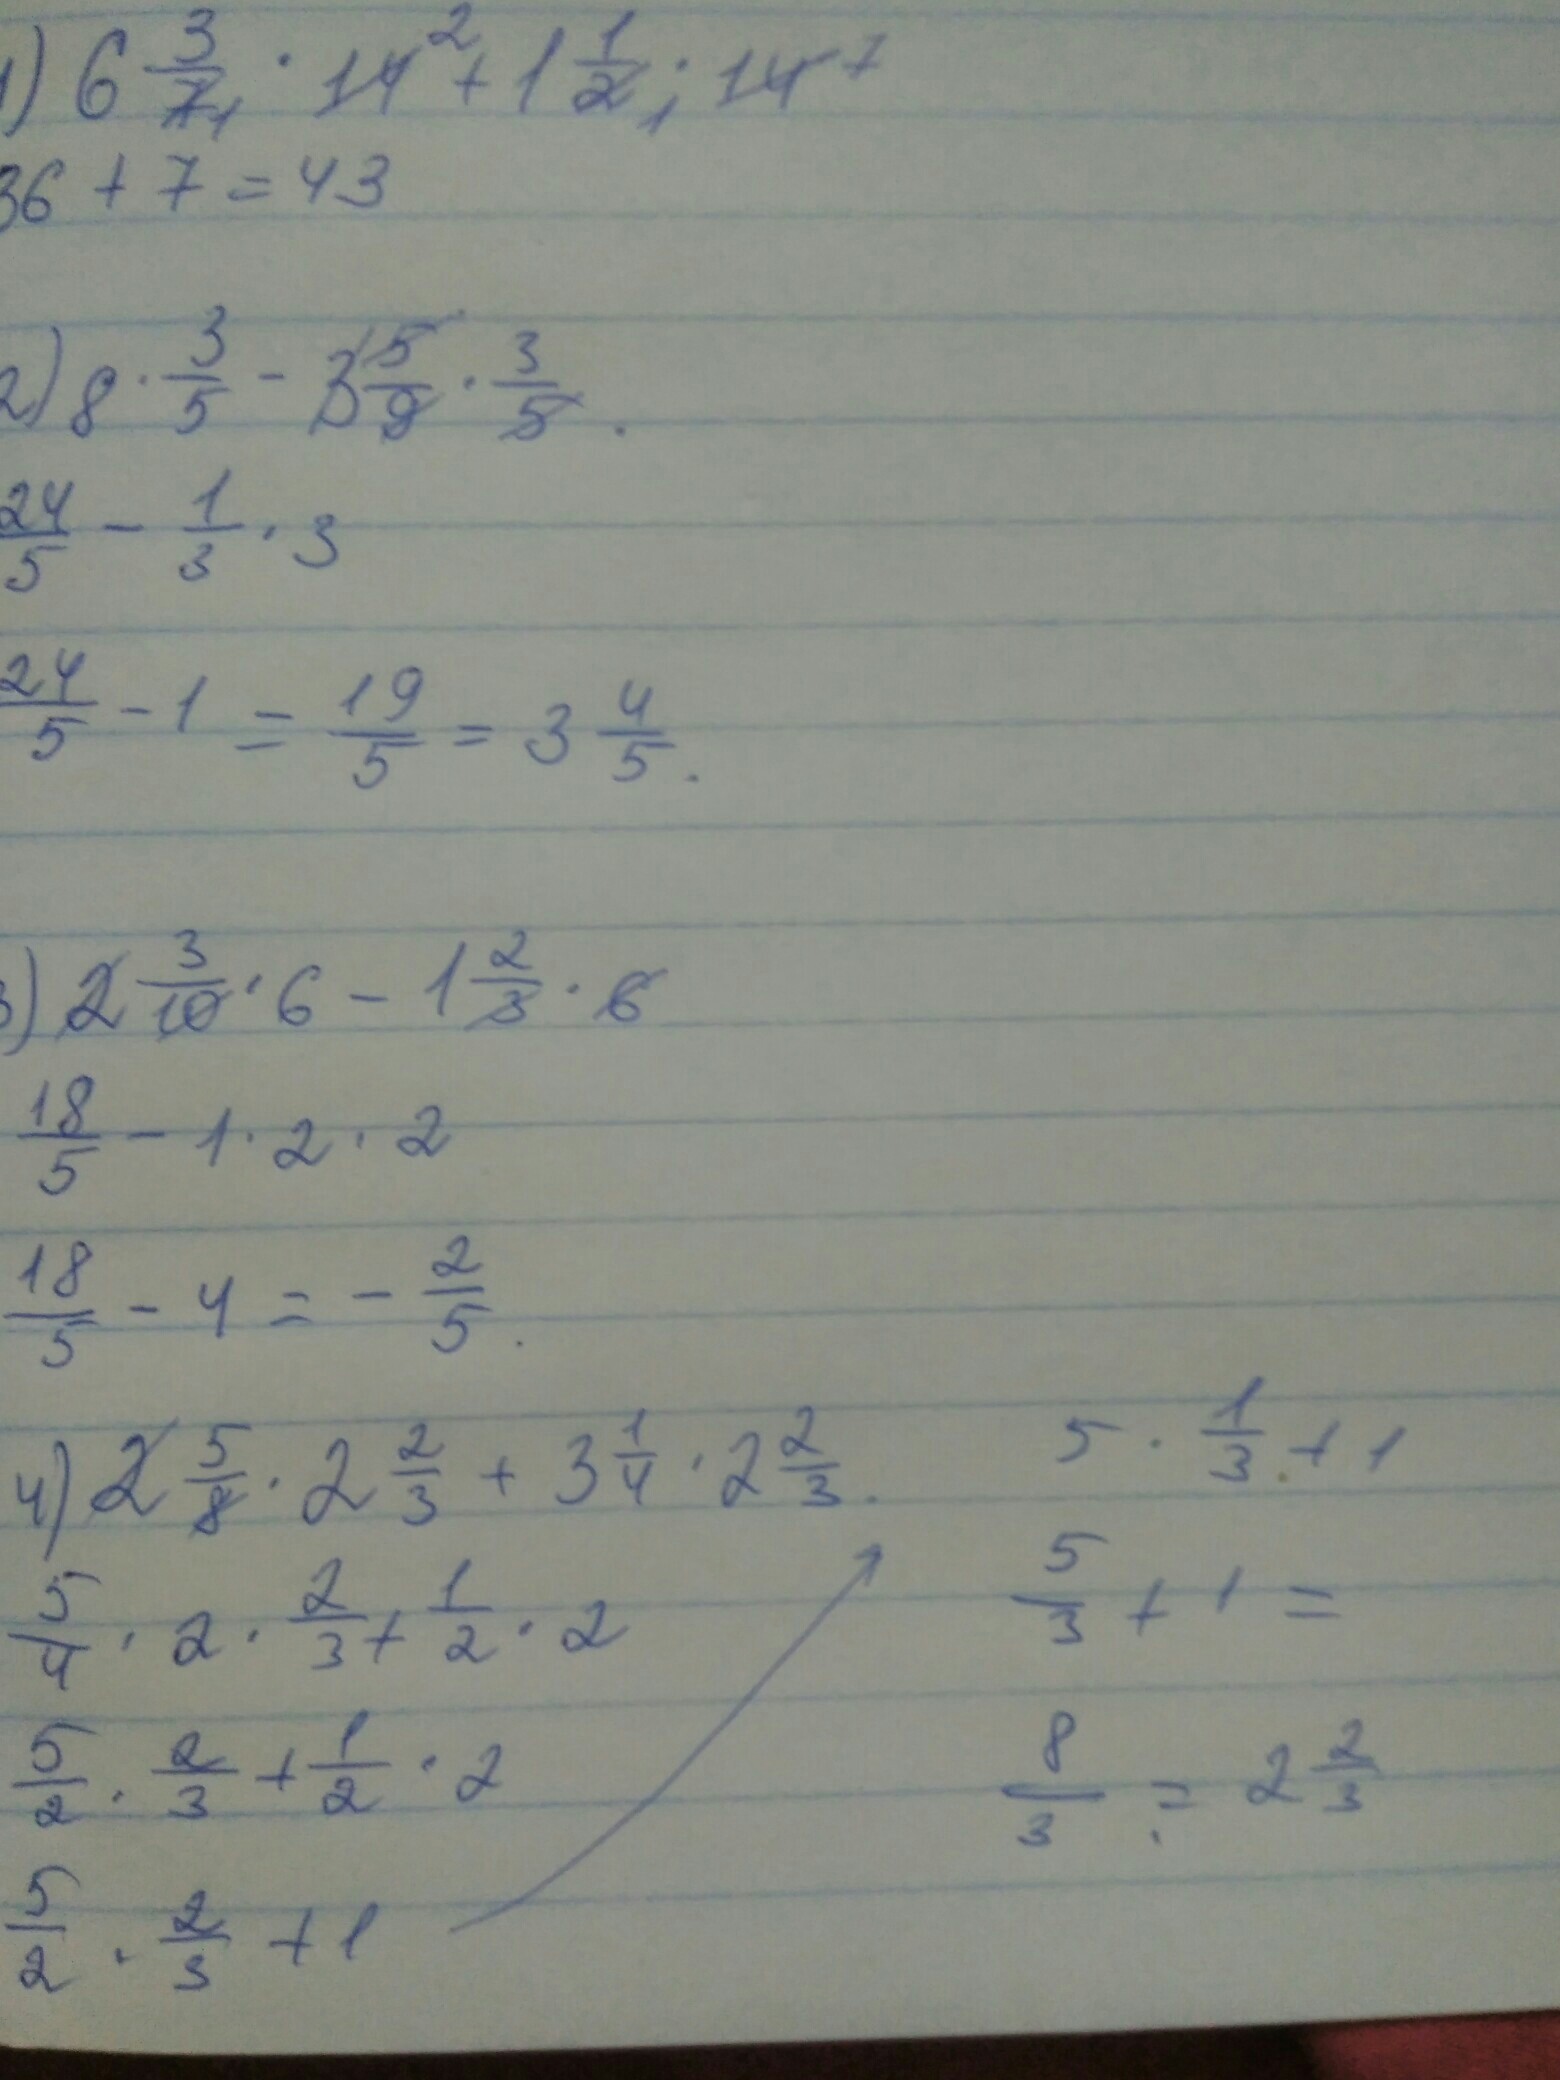 1) 6 3/7 1 · 14 2 + 1 1/2 1 · 14 7
36 + 7 = 43
2) 8 · 3/5 - 3 5/9 · 3/5.
24/5 - 1/3 · 3
24/5 - 1 = 19/5 = 3 4/5.
3) 2 3/10 · 6 - 1 2/3 · 6
18/5 - 1 · 2 · 2
18/5 - 4 = - 2/5.
4) 2 5/8 · 2 2/3 + 3 1/4 · 2 2/3.
5/4 · 2 · 2/3 + 1/2 · 2
5/2 · 2/3 + 1/2 · 2
5/2 · 2/3 + 1
5 · 1/3 + 1
5/3 + 1 =
8/3 = 2 2/3